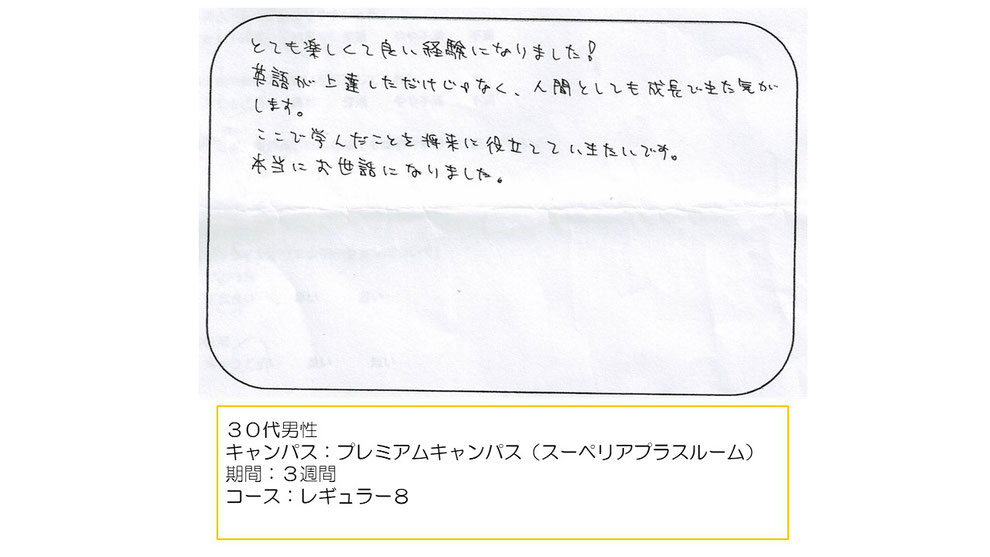 とても楽しくて良い経験になりました!
英語が上達しただけじゃなく、人間としても成長できた気が
します。
ここで学んだことを将来に役立てていきたいです。
本当にお世話になりました。
３０代男性
キャンパス：プレミアムキャンパス（スーペリアプラスルーム）
期間：３週間
コース：レギュラー８